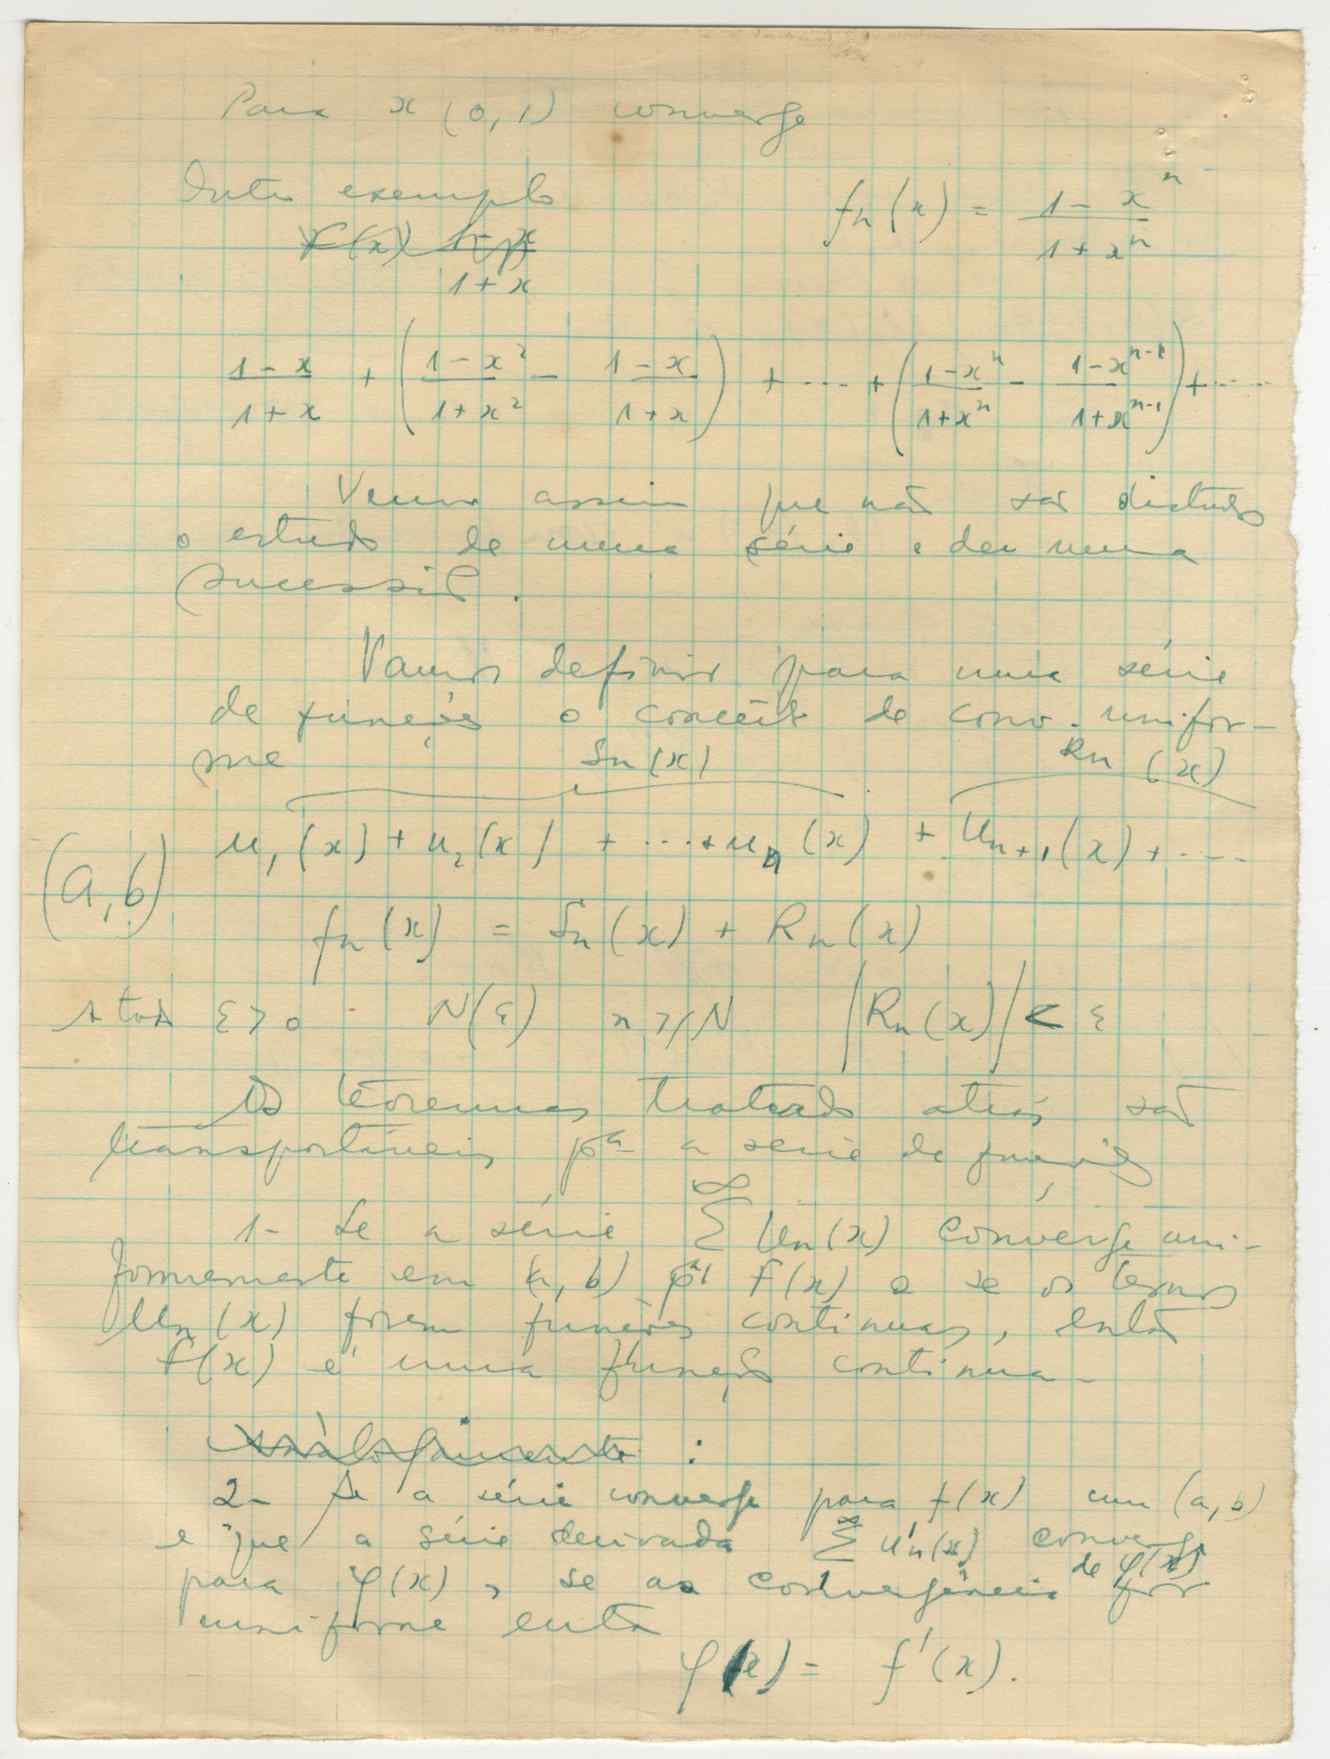 Para x (0,1) converge
Outro exemplo
fn(x) = (1 - x^n)/(1 + x^n)
f(x) (1 - x)/(1 + x)
(1 - x)/(1 + x) + ((1 - x²)/(1 + x²) - (1 - x)/(1 + x)) + ---- + ((1 - x^n)/(1 + x^n) - (1 - x^{n-1})/(1 + x^{n-1})) + ----
Vemos assim que não são distintos
o estudo de uma série e de uma
sucessão.
Vamos definir para uma série
de funções o conceito de conv. unifor-
me Sn(x) Rn(x)
u₁(x) + u₂(x) + ---- + un(x) + un+1(x) + ----
(a, b)
fn(x) = Sn(x) + Rn(x)
A todo ε > 0 N(ε) n ⩾ N |Rn(x)| < ε
Os teoremas tratados atrás são
transportáveis pª a série de funções
1- Se a série ∞∑ un(x) converge uni-
formemente em (a, b) pª f(x) e se os termos
un(x) forem funções contínuas, então
f(x) é uma função contínua -
Analogamente :
2- Se a série converge para f(x) em (a, b)
e que a série derivada ∞∑ u'n(x) converge
para φ(x), se a convergência de φ(x) for
uniforme então
φ(x) = f'(x).